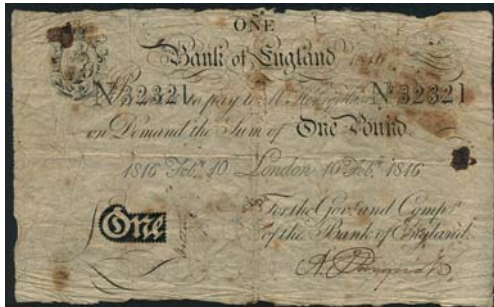 ONE
Bank of England 1816
Nº 32321 to pay to Mr Nº 32321
on Demand the Sum of One Pound
1816 Feby 10 London 10 Feby 1816
For the Govr and Compa
One of the Bank of England.